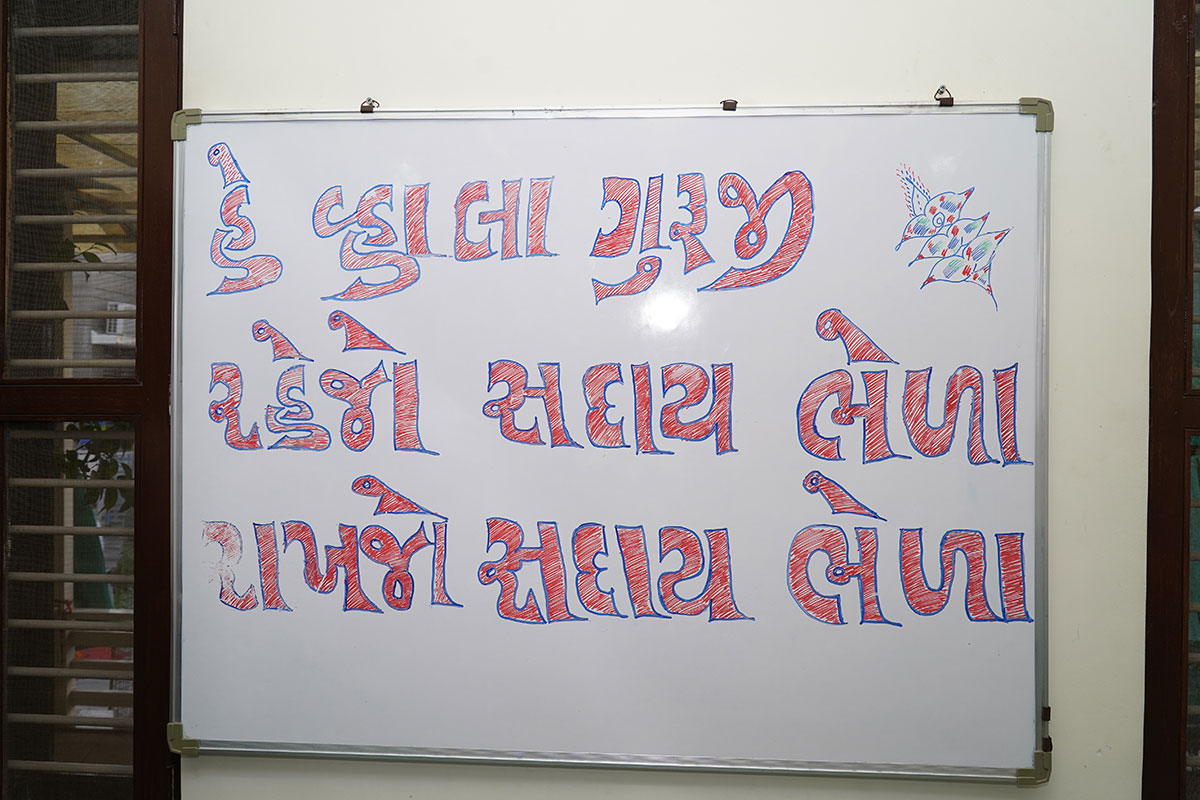 હે વ્હાલા ગુરુજી
રહેજો સદાય ભેળા
રાખજો સદાય ભેળા